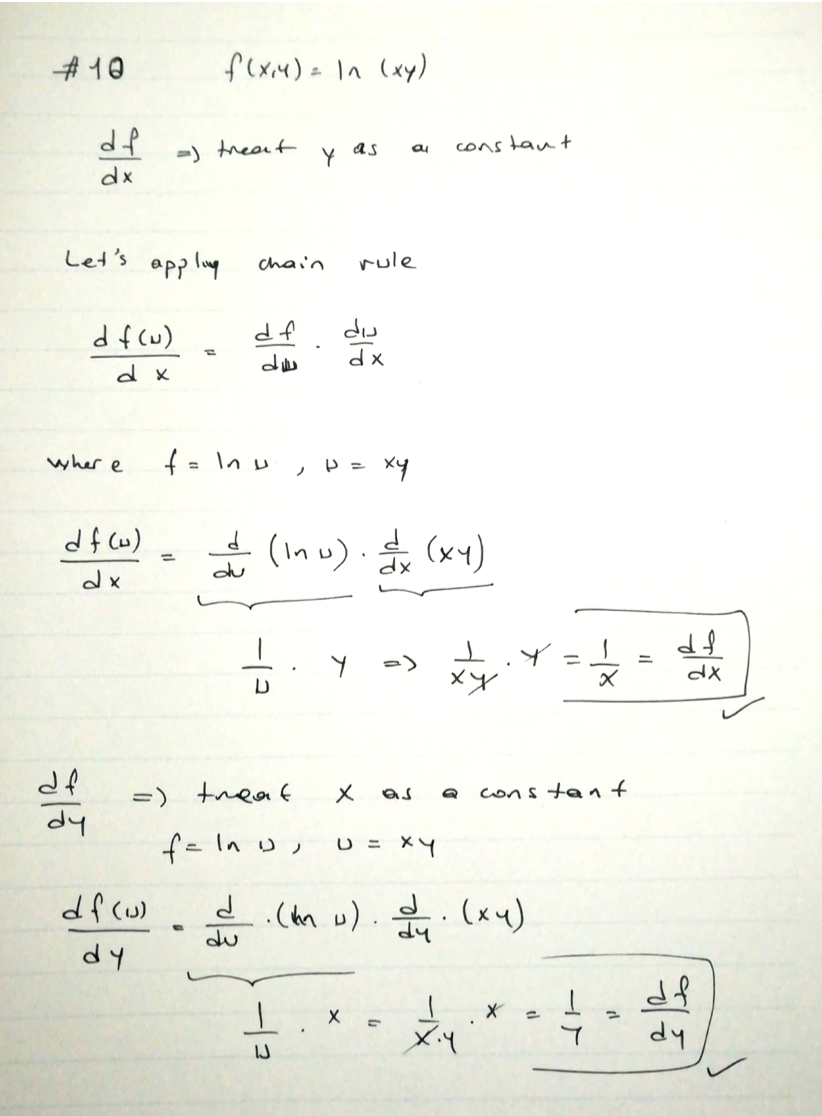 #10 f(x,y) = ln (xy)
df/dx => treat y as a constant
Let's apply chain rule
d f(u)/d x = df/du · du/dx
where f = ln u , u = xy
df(u)/dx = d/du (ln u) · d/dx (xy)
1/u · y => 1/xy · y = 1/x = df/dx ✓
df/dy => treat x as a constant
f = ln u , u = xy
df(u)/dy = d/du · (ln u) · d/dy · (xy)
1/u · x = 1/x·y · x = 1/y = df/dy ✓